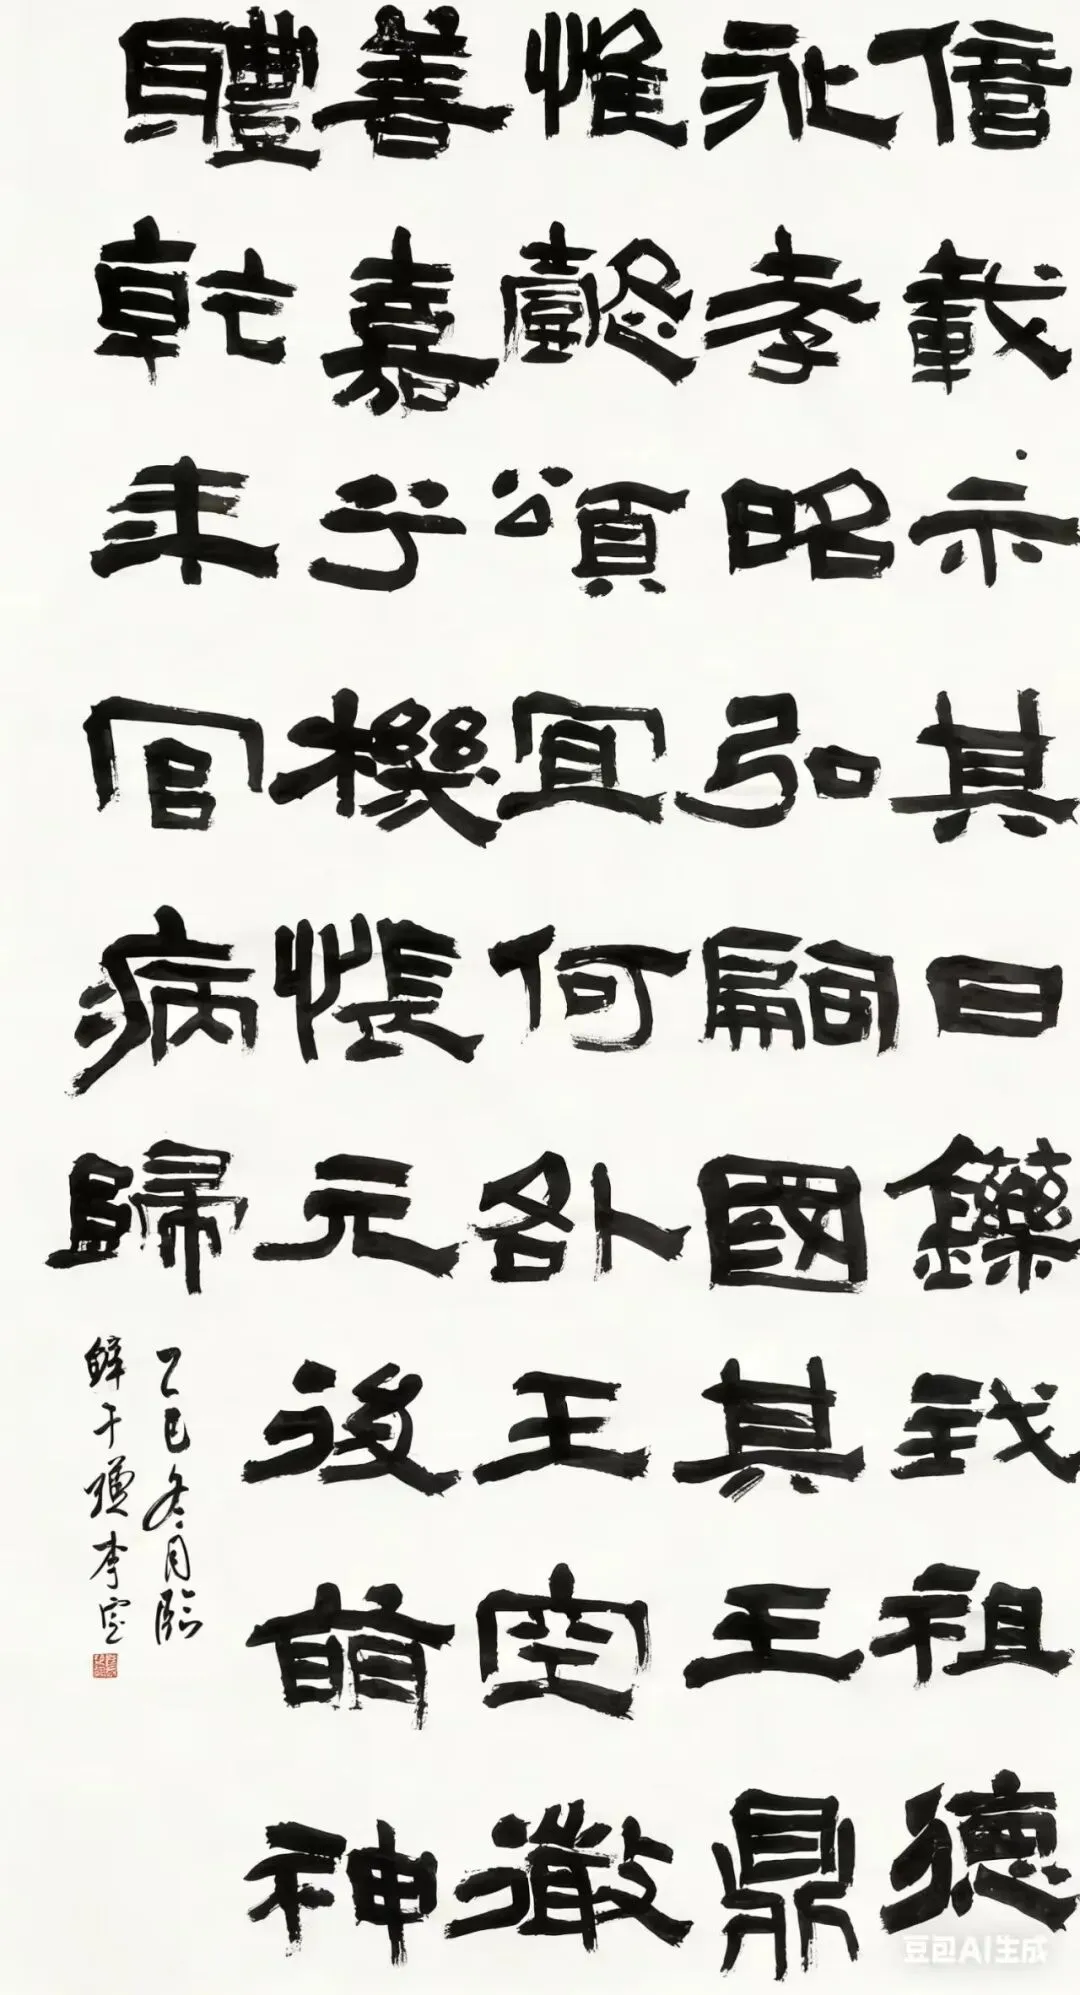 載示其曰鑠我祖德
永孝昭弘嗣國其王鼎
惟懿頌宜何王空
善嘉乎機悵元後神
體乾官病歸
乙巳冬月臨
鮮于璜李
豆包AI生成